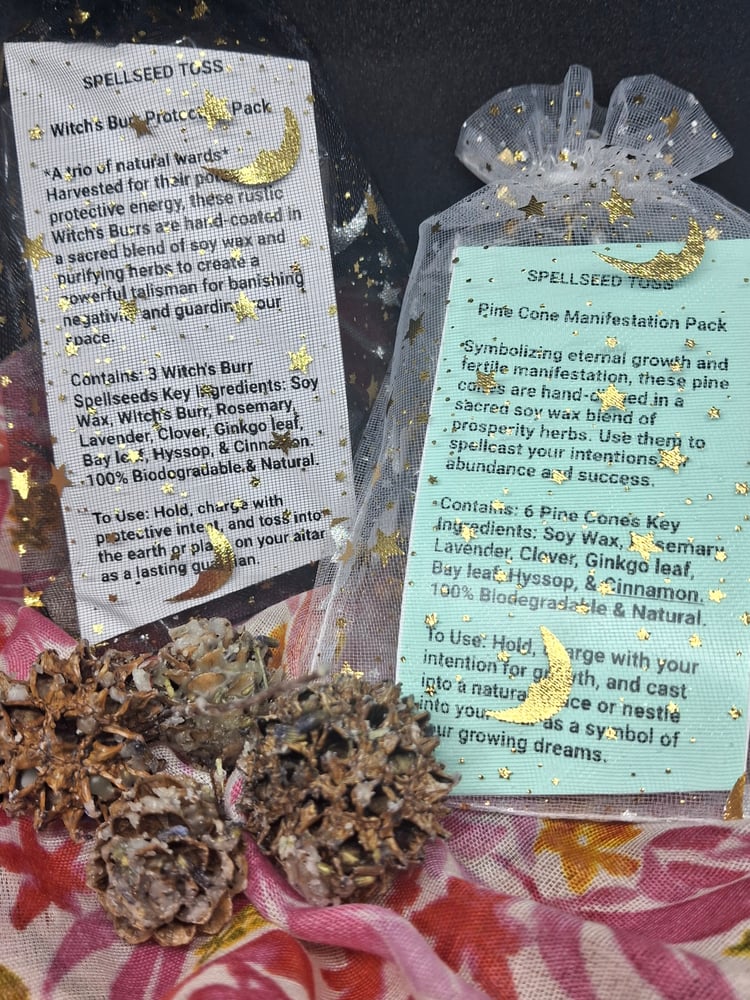 SPELLSEED TOSS
Witch's Burr Protection Pack
*A trio of natural wards*
Harvested for their
protective energy, these rustic
Witch's Burrs are hand-coated in
a sacred blend of soy wax and
purifying herbs to create a
powerful talisman for banishing
negativity and guarding your
space.
Contains: 3 Witch's Burr
Spellseeds Key Ingredients: Soy
Wax, Witch's Burr, Rosemary,
Lavender, Clover, Ginkgo leaf,
Bay leaf, Hyssop, & Cinnamon.
100% Biodogradable & Natural.
To Use: Hold, charge with
protective intent, and toss into
the earth or place on your altar
as a lasting guardian.
SPELLSEED TOSS
Pine Cone Manifestation Pack
*Symbolizing eternal growth and
fertile manifestation, these pine
cones are hand-coated in a
sacred soy wax blend of
prosperity herbs. Use them to
spellcast your intentions
abundance and success.
Contains: 6 Pine Cones Key
Ingredients: Soy Wax, Rosemary,
Lavender, Clover, Ginkgo leaf,
Bay leaf, Hyssop, & Cinnamon.
100% Biodegradable & Natural.
To Use: Hold, charge with your
intention for growth, and cast
into a natural or nestle
into your as a symbol of
our growing dreams.